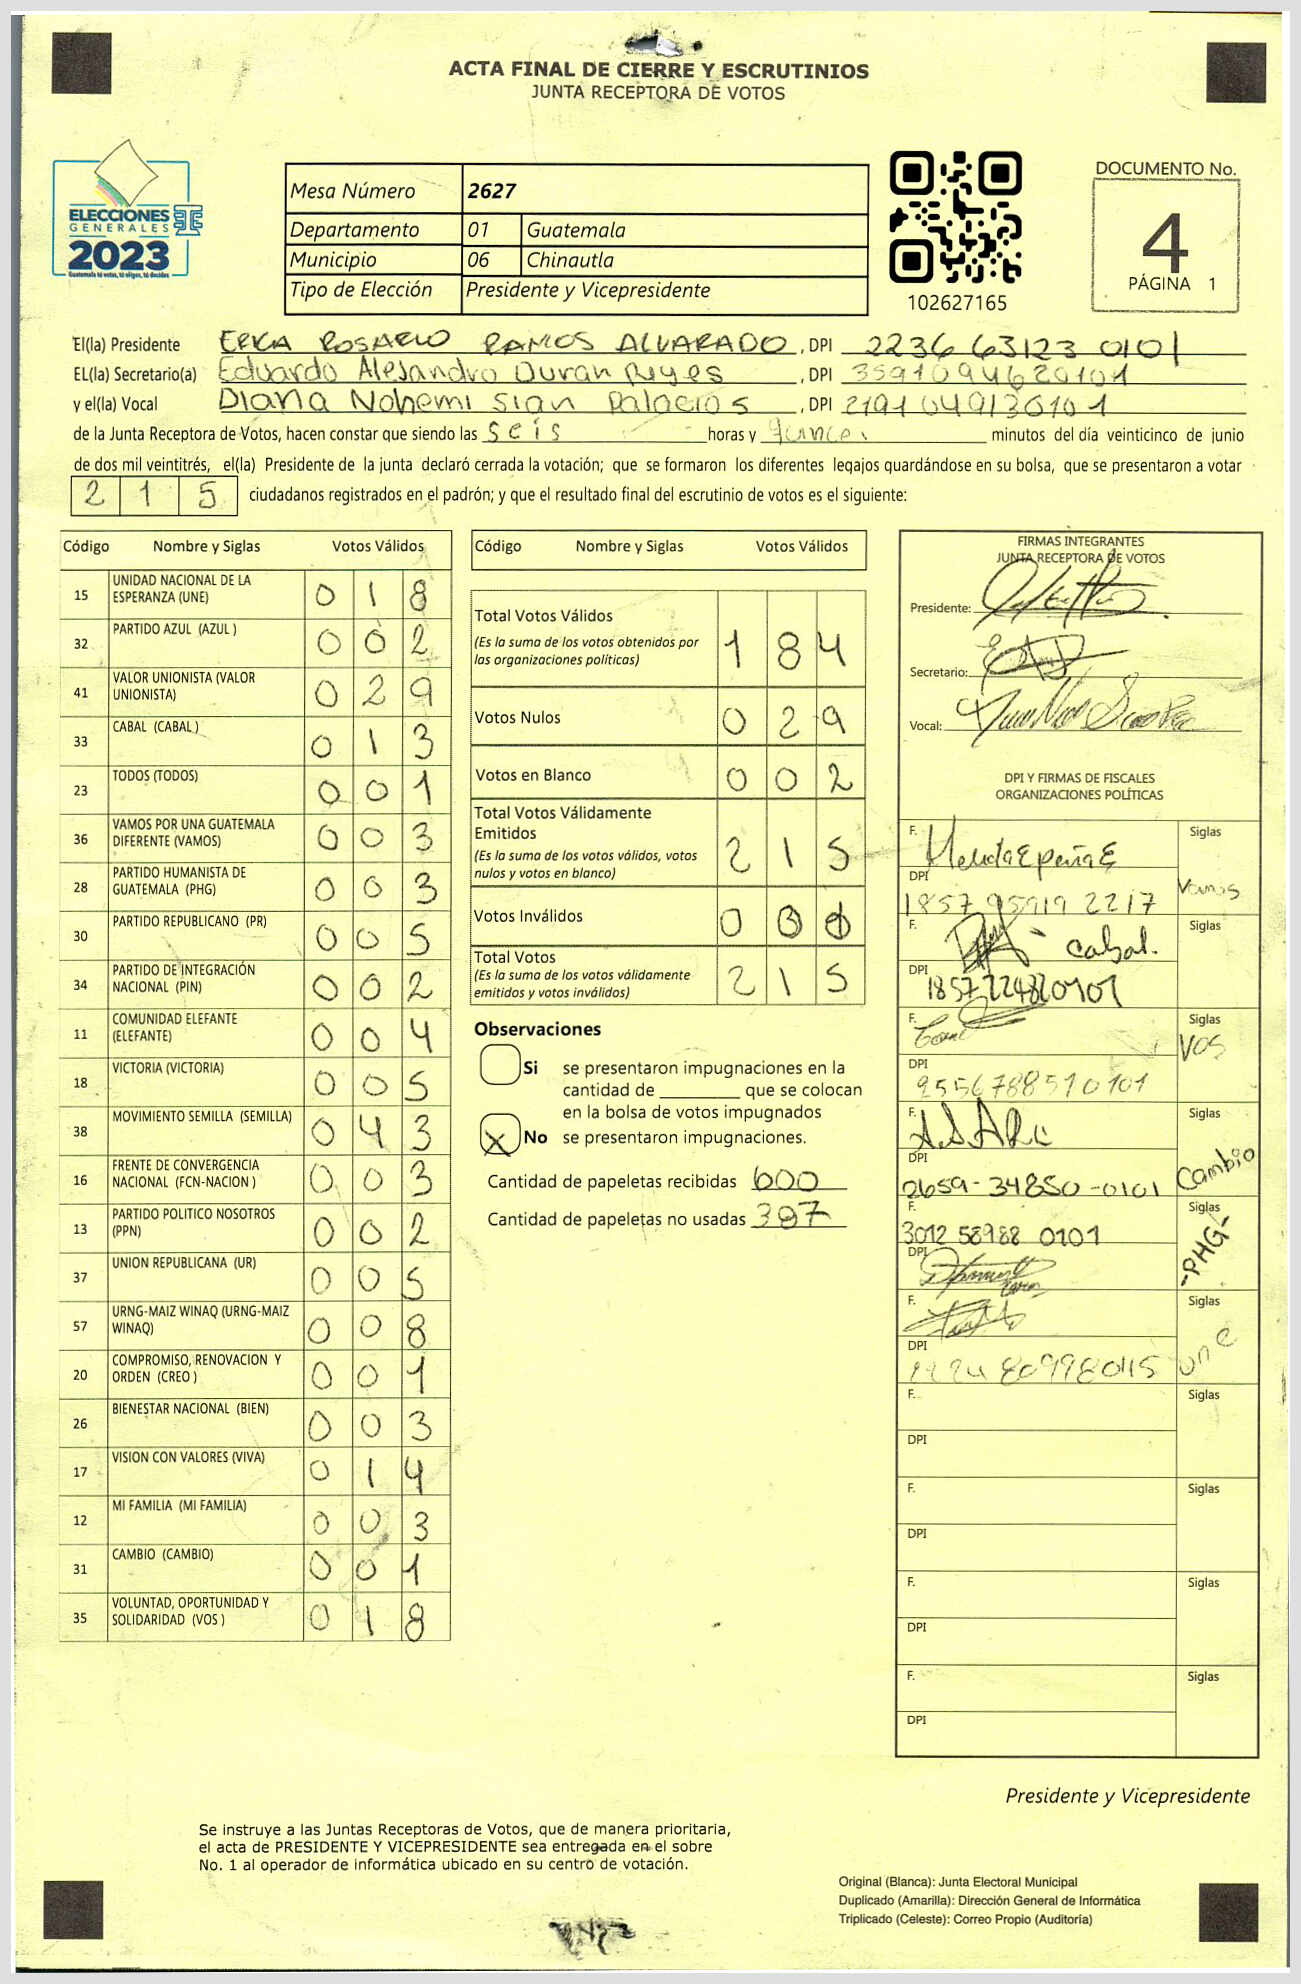 ACTA FINAL DE CIERRE Y ESCRUTINIOS
JUNTA RECEPTORA DE VOTOS
ELECCIONES
GENERALES
2023
Guatemala tú votas, tú eliges, tú decides
Mesa Número 2627
Departamento 01 Guatemala
Municipio 06 Chinautla
Tipo de Elección Presidente y Vicepresidente
102627165
DOCUMENTO No.
4
PÁGINA 1
El(la) Presidente ERICA ROSARIO RAMOS ALVARADO, DPI 2236 63123 0101
EL(la) Secretario(a) Eduardo Alejandro Duran Reyes, DPI 3591094620101
y el(la) Vocal Diana Nohemi Sian Palacios, DPI 2191049130101
de la Junta Receptora de Votos, hacen constar que siendo las seis horas y quince minutos del día veinticinco de junio
de dos mil veintitrés, el(la) Presidente de la junta declaró cerrada la votación; que se formaron los diferentes legajos guardándose en su bolsa, que se presentaron a votar
2 1 5 ciudadanos registrados en el padrón; y que el resultado final del escrutinio de votos es el siguiente:
Código Nombre y Siglas Votos Válidos
15 UNIDAD NACIONAL DE LA ESPERANZA (UNE) 0 1 8
32 PARTIDO AZUL (AZUL ) 0 0 2
41 VALOR UNIONISTA (VALOR UNIONISTA) 0 2 9
33 CABAL (CABAL ) 0 1 3
23 TODOS (TODOS) 0 0 1
36 VAMOS POR UNA GUATEMALA DIFERENTE (VAMOS) 0 0 3
28 PARTIDO HUMANISTA DE GUATEMALA (PHG) 0 0 3
30 PARTIDO REPUBLICANO (PR) 0 0 5
34 PARTIDO DE INTEGRACIÓN NACIONAL (PIN) 0 0 2
11 COMUNIDAD ELEFANTE (ELEFANTE) 0 0 4
18 VICTORIA (VICTORIA) 0 0 5
38 MOVIMIENTO SEMILLA (SEMILLA) 0 4 3
16 FRENTE DE CONVERGENCIA NACIONAL (FCN-NACION ) 0 0 3
13 PARTIDO POLITICO NOSOTROS (PPN) 0 0 2
37 UNION REPUBLICANA (UR) 0 0 5
57 URNG-MAIZ WINAQ (URNG-MAIZ WINAQ) 0 0 8
20 COMPROMISO, RENOVACION Y ORDEN (CREO ) 0 0 1
26 BIENESTAR NACIONAL (BIEN) 0 0 3
17 VISION CON VALORES (VIVA) 0 1 4
12 MI FAMILIA (MI FAMILIA) 0 0 3
31 CAMBIO (CAMBIO) 0 0 1
35 VOLUNTAD, OPORTUNIDAD Y SOLIDARIDAD (VOS ) 0 1 8
Código Nombre y Siglas Votos Válidos
Total Votos Válidos 1 8 4
(Es la suma de los votos obtenidos por
las organizaciones políticas)
Votos Nulos 0 2 9
Votos en Blanco 0 0 2
Total Votos Válidamente
Emitidos 2 1 5
(Es la suma de los votos válidos, votos
nulos y votos en blanco)
Votos Inválidos 0 0
Total Votos 2 1 5
(Es la suma de los votos válidamente
emitidos y votos inválidos)
Observaciones
Si se presentaron impugnaciones en la
cantidad de ________ que se colocan
en la bolsa de votos impugnados
X No se presentaron impugnaciones.
Cantidad de papeletas recibidas 600
Cantidad de papeletas no usadas 387
FIRMAS INTEGRANTES
JUNTA RECEPTORA DE VOTOS
Presidente:
Secretario:
Vocal:
DPI Y FIRMAS DE FISCALES
ORGANIZACIONES POLÍTICAS
F. Siglas
DPI Vamos
1857 95919 2217
F. Cabal. Siglas
DPI
1857224820101
F. Siglas
VOS
DPI
2556788510101
F. Siglas
DPI
2659-34850-0101 Cambio
F. Siglas
3012 58988 0101
DPI -PHG-
F. Siglas
DPI une
F. Siglas
DPI
F. Siglas
DPI
F. Siglas
DPI
F. Siglas
DPI
Presidente y Vicepresidente
Se instruye a las Juntas Receptoras de Votos, que de manera prioritaria,
el acta de PRESIDENTE Y VICEPRESIDENTE sea entregada en el sobre
No. 1 al operador de informática ubicado en su centro de votación.
Original (Blanca): Junta Electoral Municipal
Duplicado (Amarilla): Dirección General de Informática
Triplicado (Celeste): Correo Propio (Auditoría)